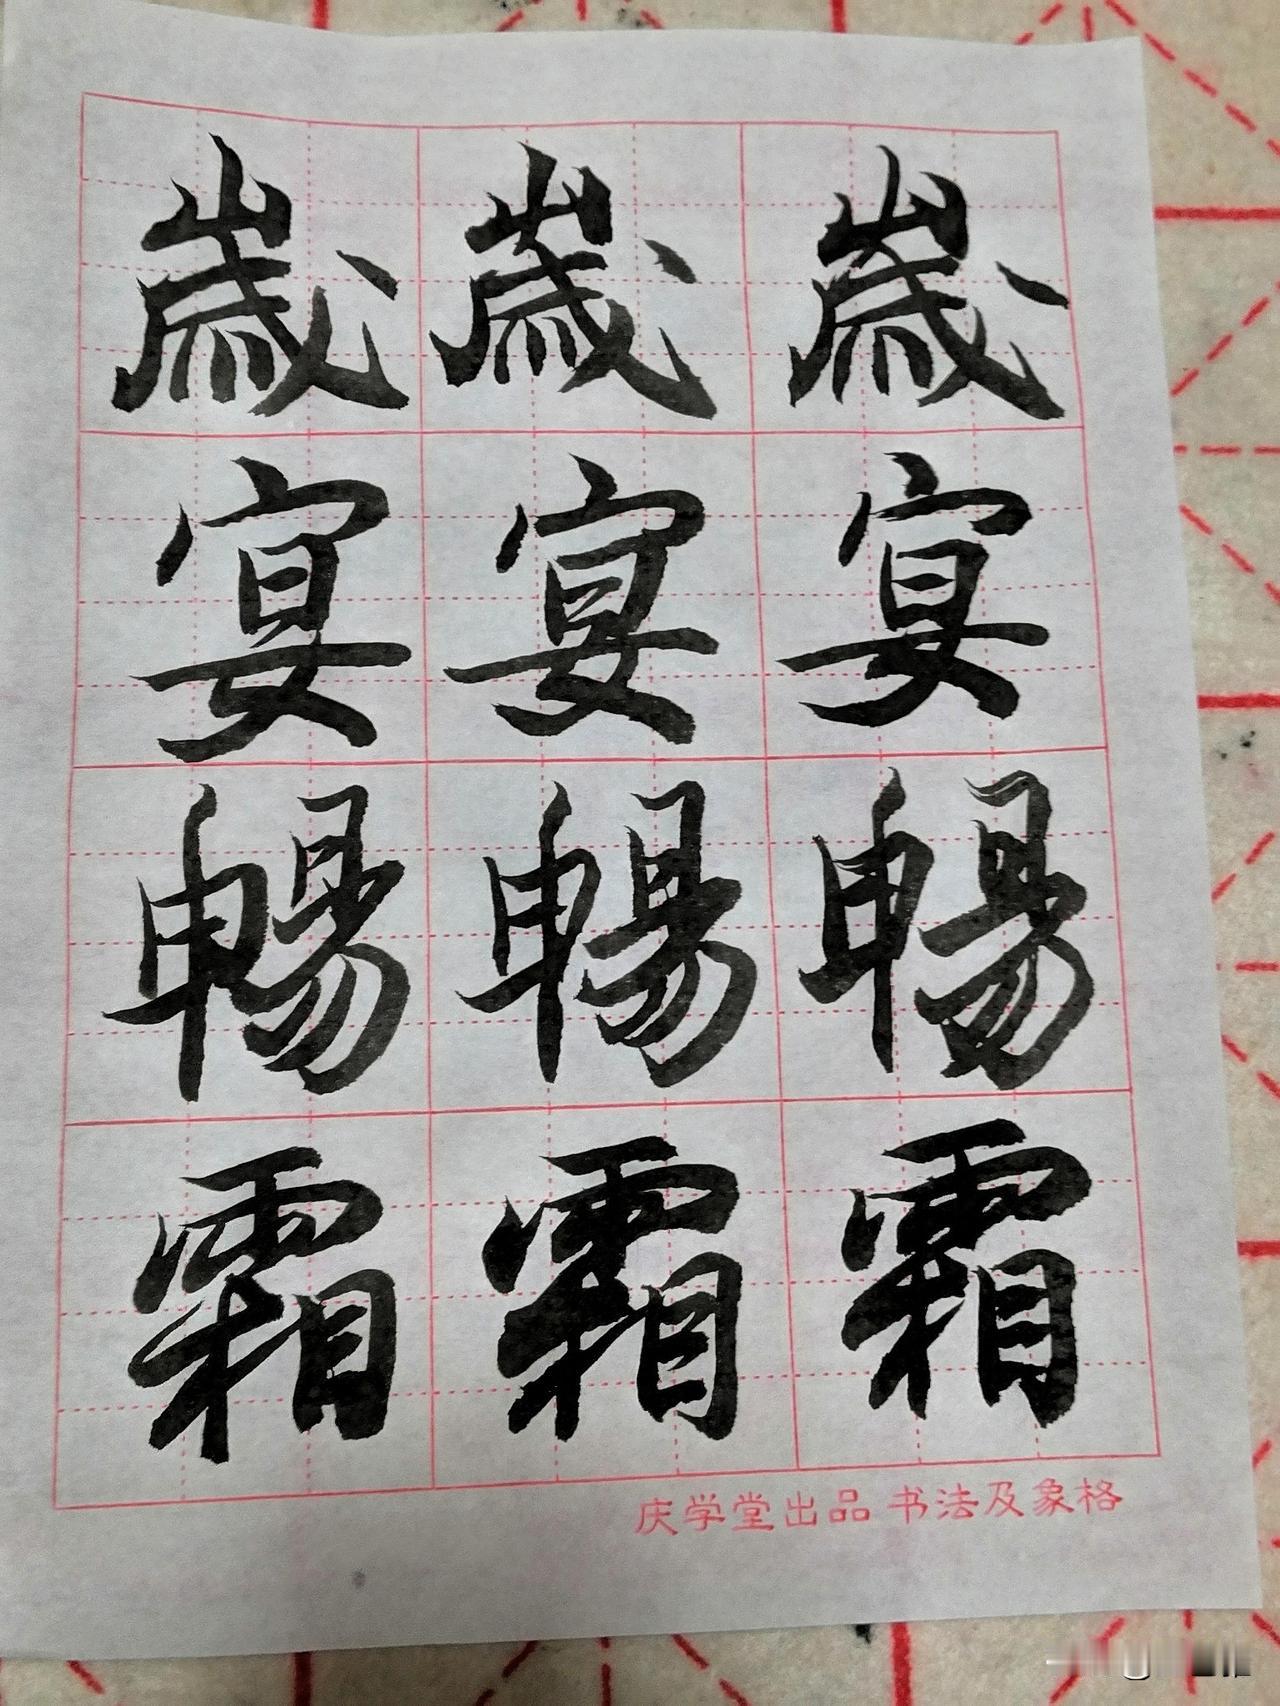 歳歳歳
宴宴宴
暢暢暢
霜霜霜
庆学堂出品 书法及象格